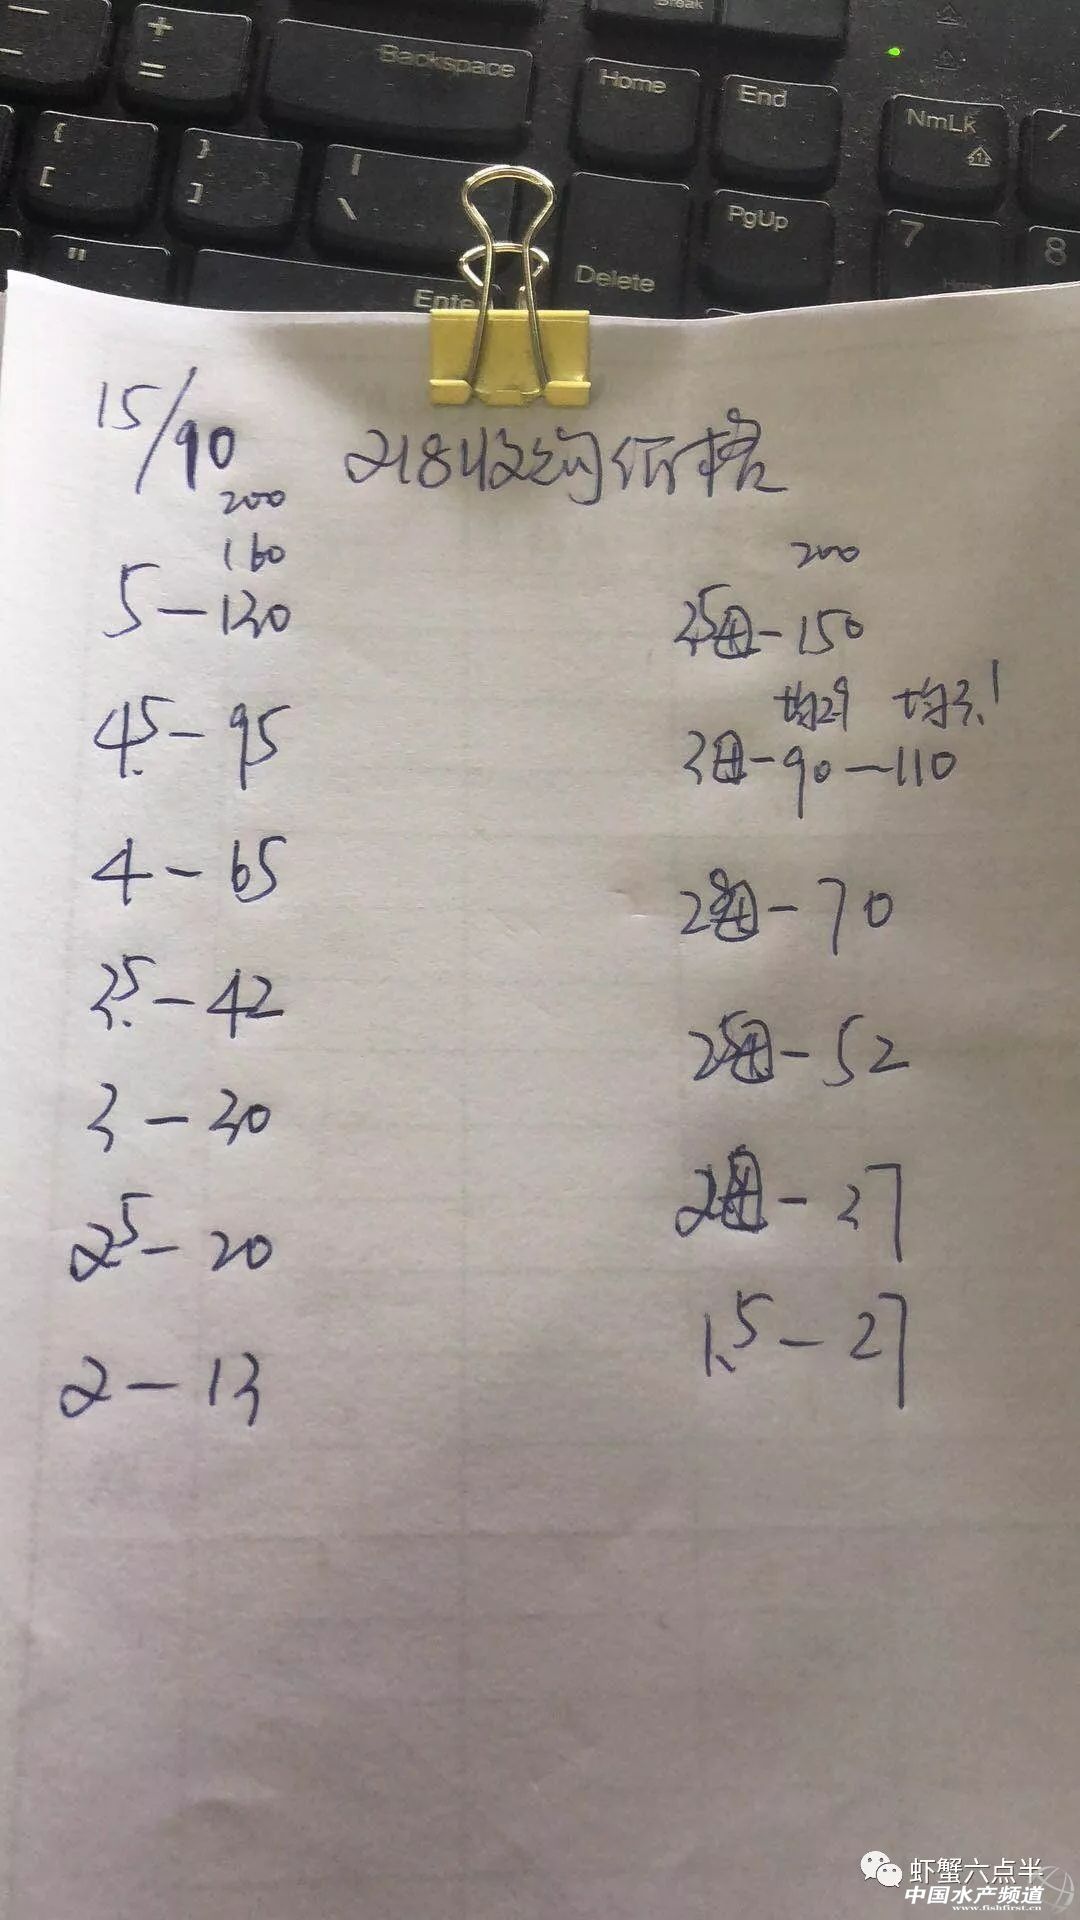 Break
+
=
Backspace
Home
End
NmLk
/
{
[
}
]
|
\
PgUp
7
Home
8
"
Enter
Delete
15/90
218收购价格
200
160
5-130
4.5-95
4-65
3.5-42
3-30
2.5-20
2-13
200
3.5母-150
均2.9 均3.1
3母-90-110
28母-70
25母-52
2母-37
1.5-27
虾蟹六点半
中国水产频道
www.fishfirst.cn